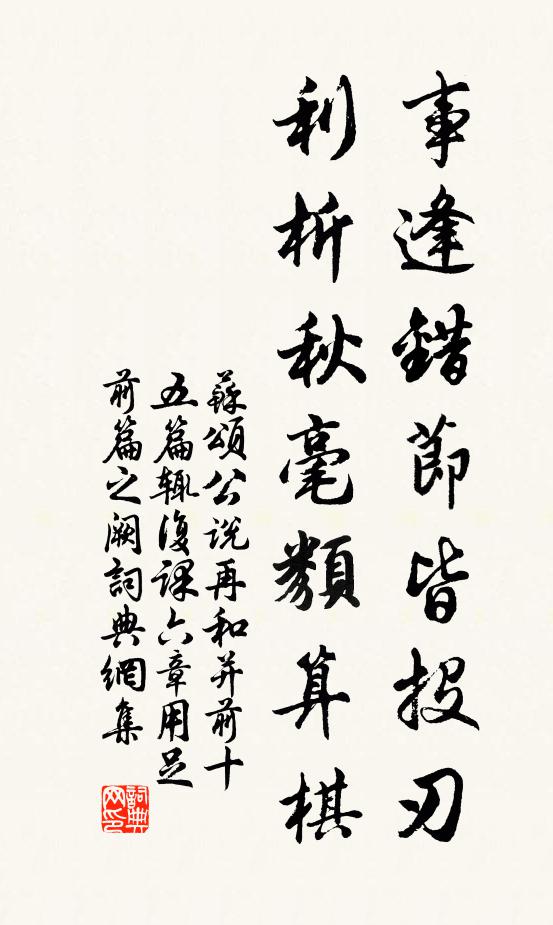 事逢錯節皆投刃
利析秋毫類算棋
蘇頌公說再和并前十
五篇輒復課六章用足
前篇之闕詞典網集
詞典
网印